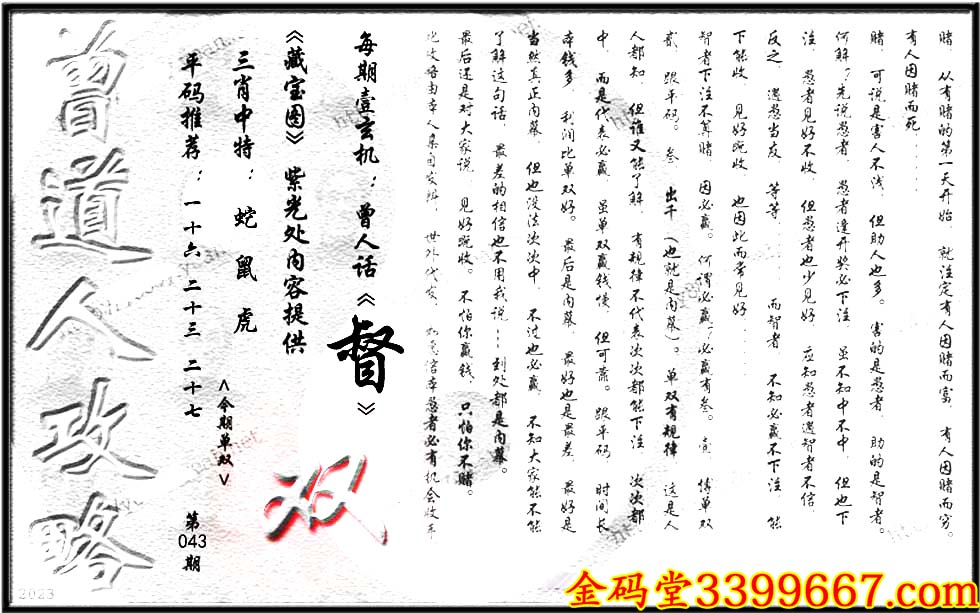 赌. 从有赌的第一天开始, 就注定有人因赌而富. 有人因赌而穷.
有人因赌而死......
赌. 可说是害人不浅. 但助人也多. 害的是愚者 助的是智者.
何解? 先说愚者. 愚者逢开奖必下注 虽不知中不中. 但也下
注. 愚者见好不收. 但愚者也少见好 应知愚者遇智者不信.
反之. 遇愚当友. 等等...... 而智者 不知必赢不下注 能
下能收. 见好既收. 也因此而常见好......
智者下注不算赌. 因必赢. 何谓必赢? 必赢有叁. 壹 博单双
贰 跟平码. 叁. 出千 (也就是内幕). 单双有规律 这是人
人都知. 但谁又能了解. 有规律不代表次次都能下注 次次都
中. 而是代表必赢. 虽单双赢钱慢. 但可靠. 跟平码 时间长
本钱多. 利润比单双好. 最后是内幕. 最好也是最差. 最好是
当然真正内幕. 但也没法次次中. 不过也必赢. 不知大家能不
了解这句话. 最差的相信也不用我说...到处都是内幕。
最后还是对大家说. 见好既收. 不怕你赢钱. 只怕你不赌。
此攻略由本人亲自发班. 世外代友. 愚者必有机会收手
每期壹玄机: 曾人话《督》
《藏宝图》紫光处内容提供
三肖中特: 蛇 鼠 虎
<今期单双>
双
平码推荐: 一十六 二十三 二十七
第
043
期
曾道人攻略
2023
金码堂3399667.com